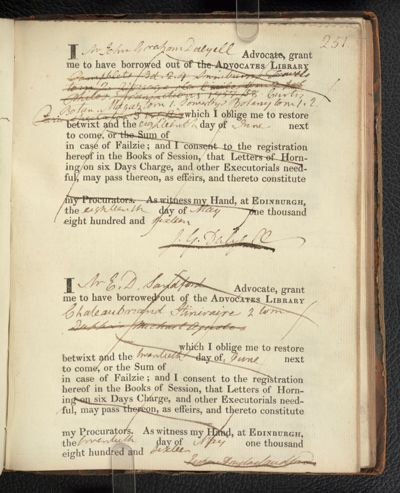 251
I Mr John Graham Dalyell Advocate, grant
me to have borrowed out of the ADVOCATES LIBRARY
which I oblige me to restore
betwixt and the eighteenth day of June next
to come, or the Sum of
in case of Failzie; and I consent to the registration
hereof in the Books of Session, that Letters of Horn-
ing on six Days Charge, and other Executorials need-
ful, may pass thereon, as effeirs, and thereto constitute
my Procurators. As witness my Hand, at EDINBURGH,
the eighteenth day of May one thousand
eight hundred and sixteen
J. G. Dalyell
I Mr E. D. Sandford Advocate, grant
me to have borrowed out of the ADVOCATES LIBRARY
Chateaubriand Itineraire 2 tom
which I oblige me to restore
betwixt and the twentieth day of June next
to come, or the Sum of
in case of Failzie; and I consent to the registration
hereof in the Books of Session, that Letters of Horn-
ing on six Days Charge, and other Executorials need-
ful, may pass thereon, as effeirs, and thereto constitute
my Procurators. As witness my Hand, at EDINBURGH,
the twentieth day of May one thousand
eight hundred and sixteen